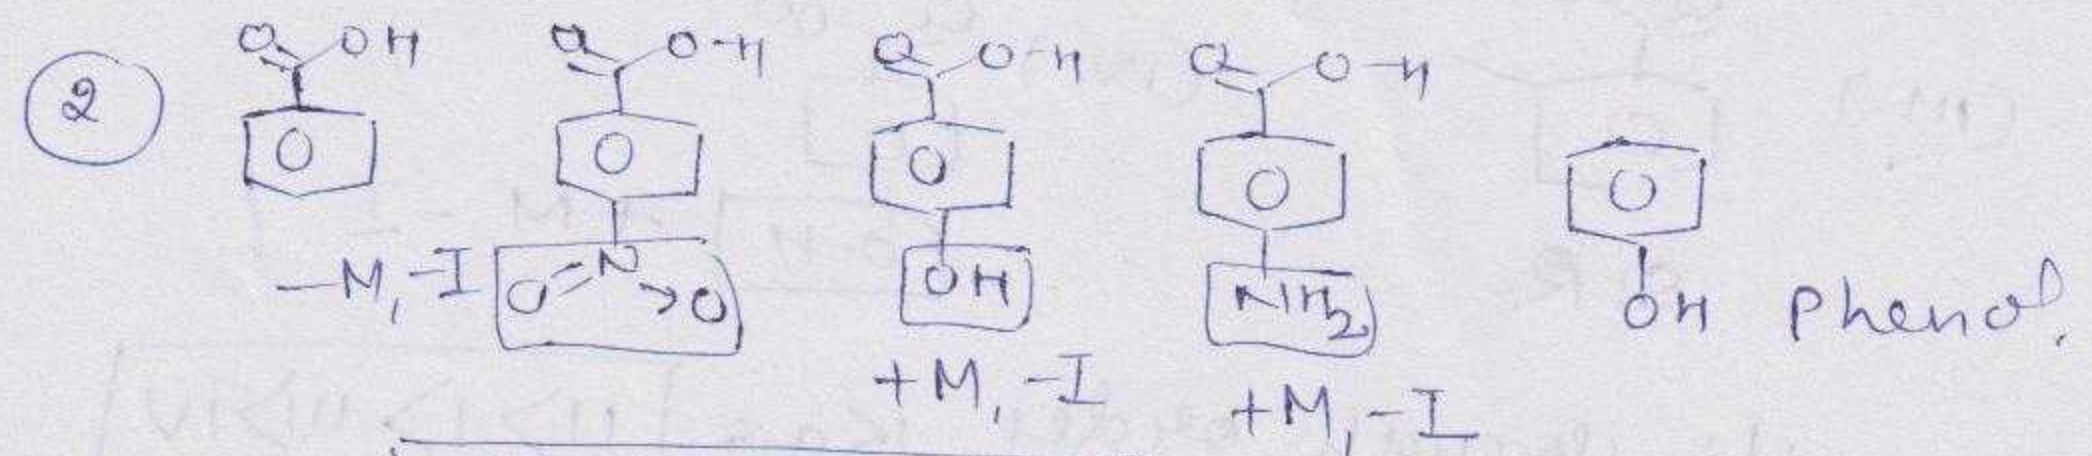 2
O OH O O-H O O-H O O-H
-M, -I O=N→O OH NH2 OH Phenol.
+M, -I +M, -I